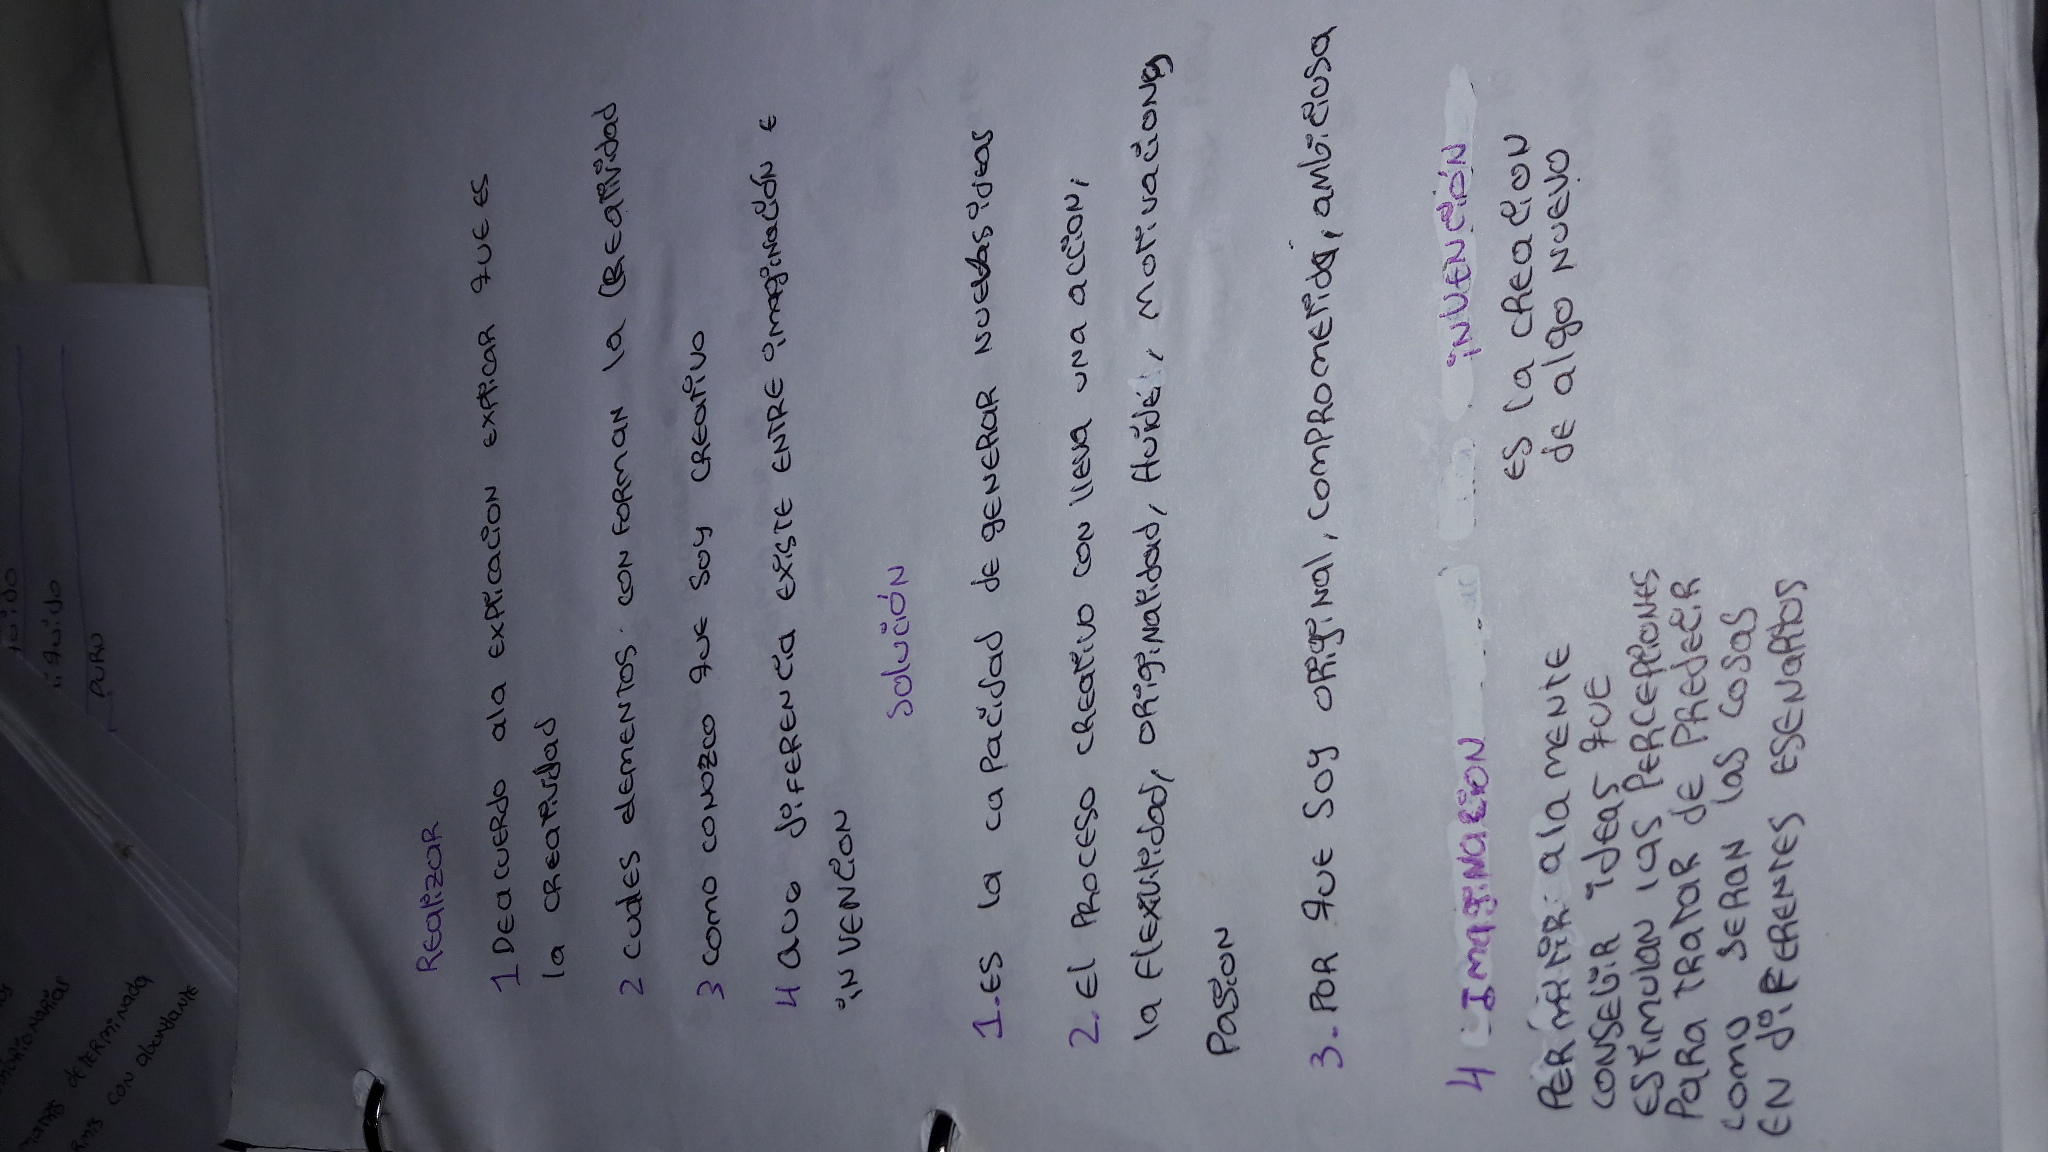 Realizar
1 Deacuerdo ala explicacion explicar que es
la creatividad
2 cuales elementos conforman la Creatividad
3 como conozco que soy creativo
4 que diferencia existe entre imaginación e
invencion
solución
1. Es la capacidad de generar nuevas ideas
2. El proceso creativo con lleva una accion,
la flexivilidad, originalidad, fluides, motivacion y
Pasion
3. Por que soy original, comprometida, ambiciosa
4 Imaginacion
Permitir a la mente
conseguir ideas que
estimulan las percepciones
para tratar de predecir
como seran las cosas
en diferentes esenarios
invención
es la creacion
de algo nuevo
iquido
puro
determinada
con abundante